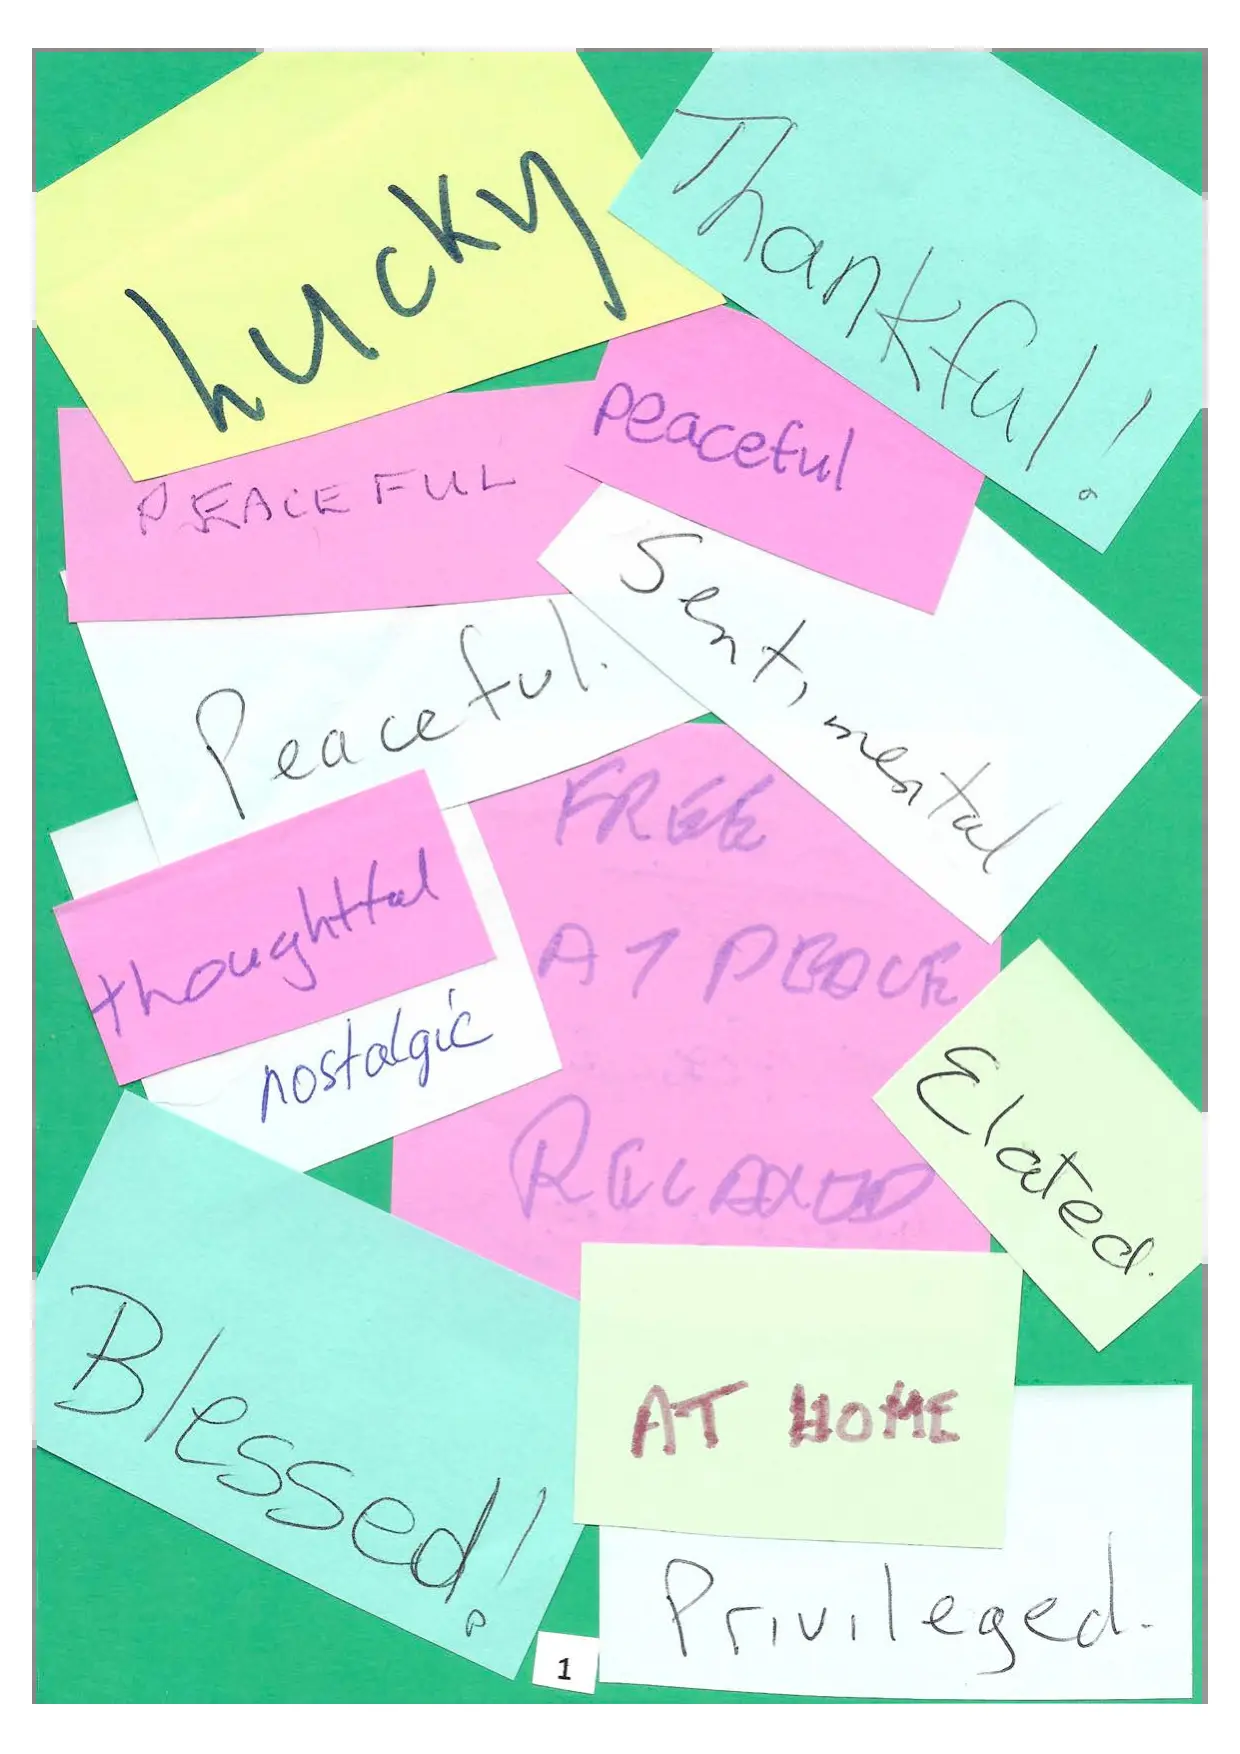 Lucky
Thankful!
peaceful
PEACEFUL
Sentimental
Peaceful.
FREE
AT PEACE
RELAXED
thoughtful
nostalgic
Elated.
Blessed!
AT HOME
Privileged.
1